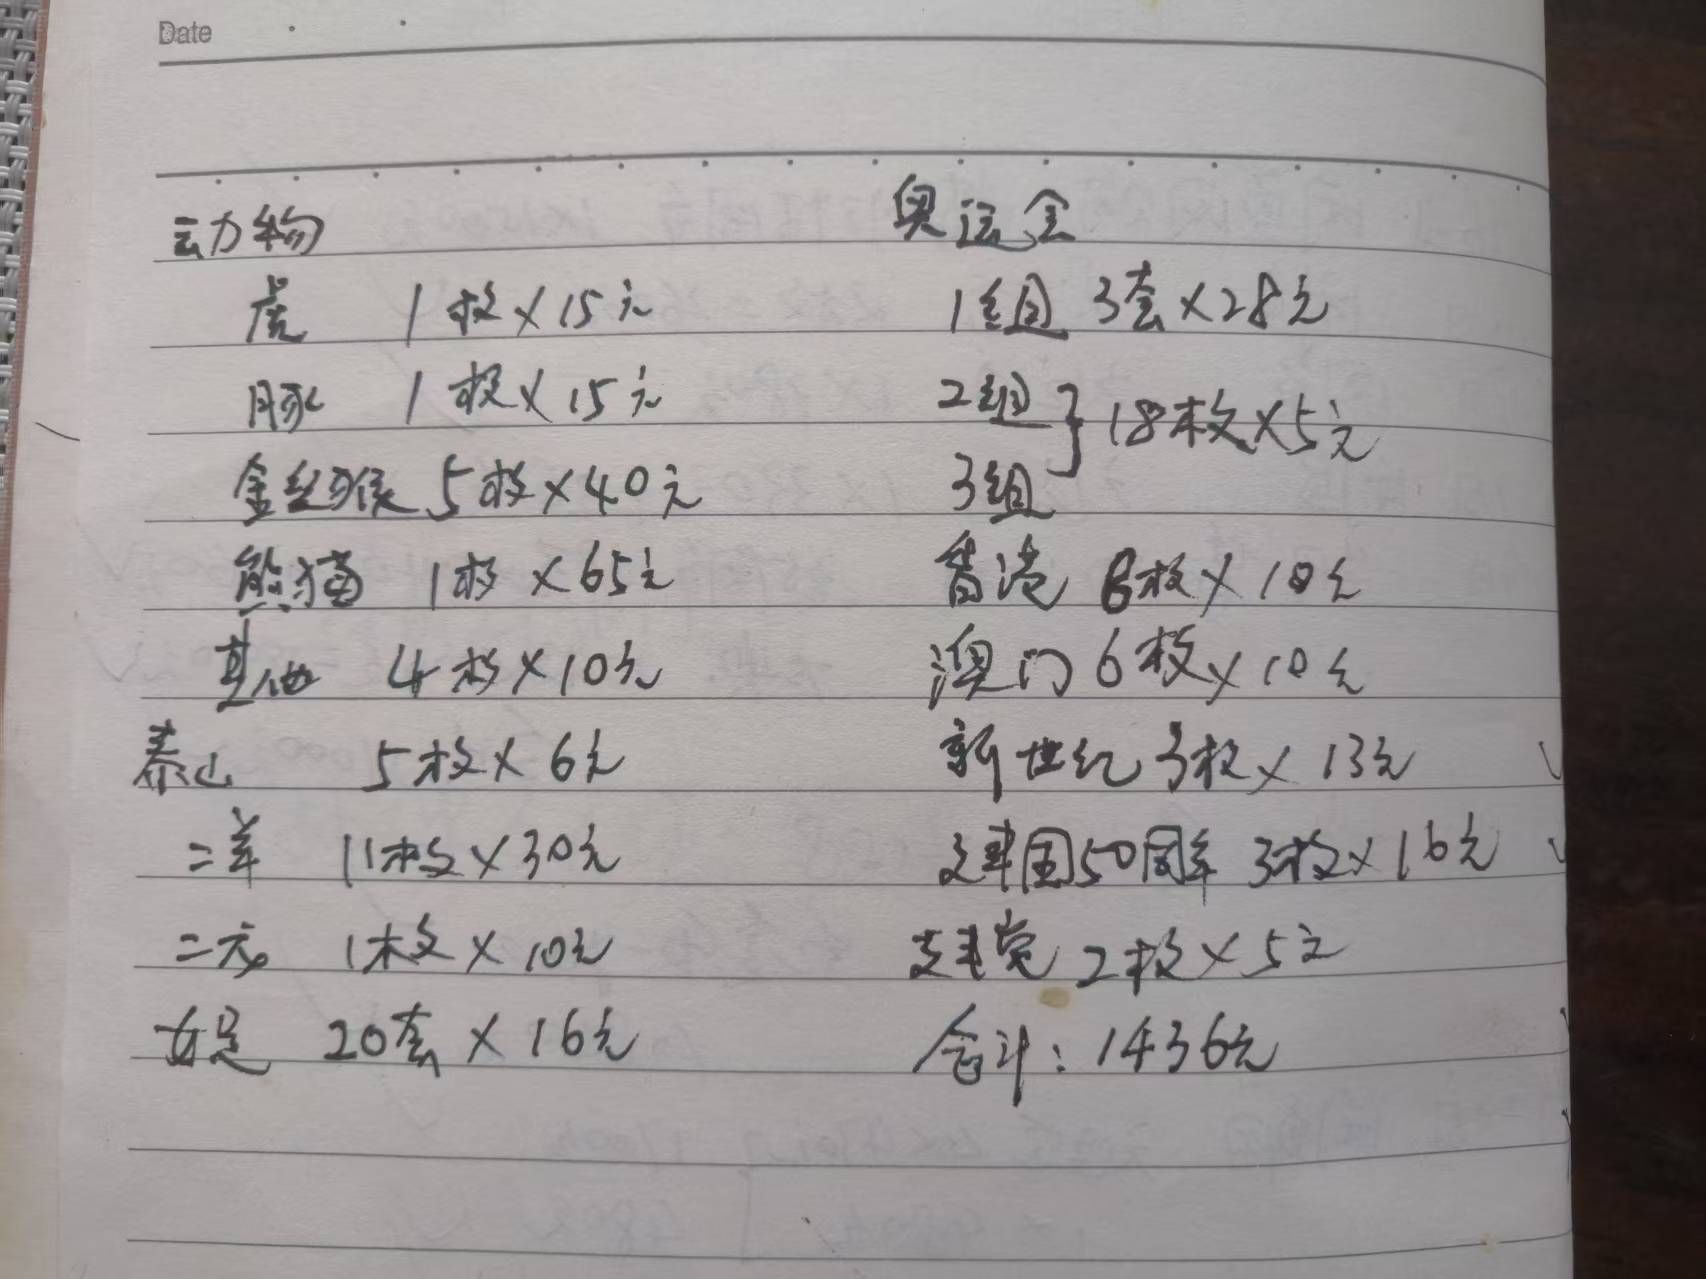 Date
动物
虎 1枚×15元
豚 1枚×15元
金丝猴 5枚×40元
熊猫 1枚×65元
其他 4枚×10元
泰山 5枚×6元
二羊 11枚×30元
二元 1枚×10元
女足 20套×16元
奥运会
1组 3套×28元
2组 } 18枚×5元
3组
香港 6枚×10元
澳门 6枚×10元
新世纪 3枚×13元
建国50周年 3枚×16元
建党 2枚×5元
合计：1436元